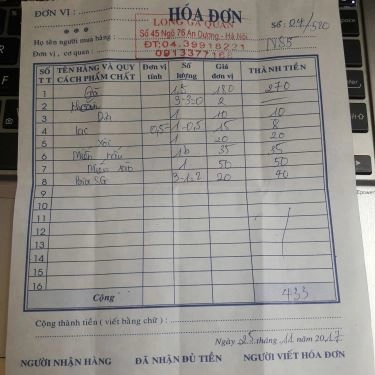 ĐƠN VỊ :
HÓA ĐƠN
LONG GÀ QUÁN
Số 45 Ngõ 76 An Dương - Hà Nội
ĐT: 04.39918221
Số : 24/520
Họ tên người mua hàng :
Đơn vị , cơ quan :
N35
SỐ TT TÊN HÀNG VÀ QUY CÁCH PHẨM CHẤT Đơn vị tính Số lượng Giá đơn vị THÀNH TIỀN
1 Gà 1,5 180 270
2 3-3=0 2
3 1 10 10
4 lạc 0,5-1-0,5 15 8
5 Xôi 1 20 20
6 Miến nấu 1b 35 35
7 1 50 50
8 Bia SG 3-1=2 20 40
9
10
11
12
13
14
15
16
Cộng 433
Cộng thành tiền ( viết bằng chữ ) :
Ngày 25 tháng 11 năm 2017
NGƯỜI NHẬN HÀNG ĐÃ NHẬN ĐỦ TIỀN NGƯỜI VIẾT HÓA ĐƠN